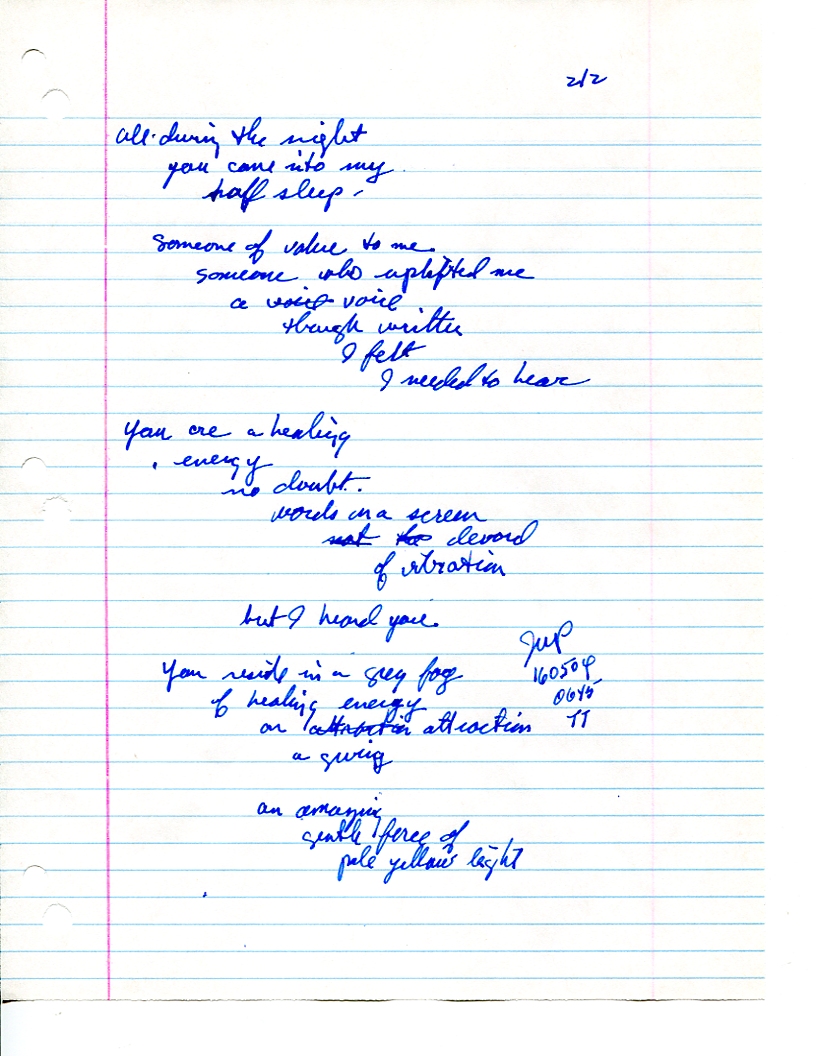 2/2
all during the night
you came into my
half sleep -
someone of value to me.
someone who uplifted me
a voice voice
though written
I felt
I needed to hear
you are a healing
energy
no doubt.
words on a screen
not too devoid
of vibration
but I heard you.
JWP
You reside in a grey fog
160504
of healing energy
0645
an attraction attraction
TT
a giving
an amazing
gentle force of
pale yellow light